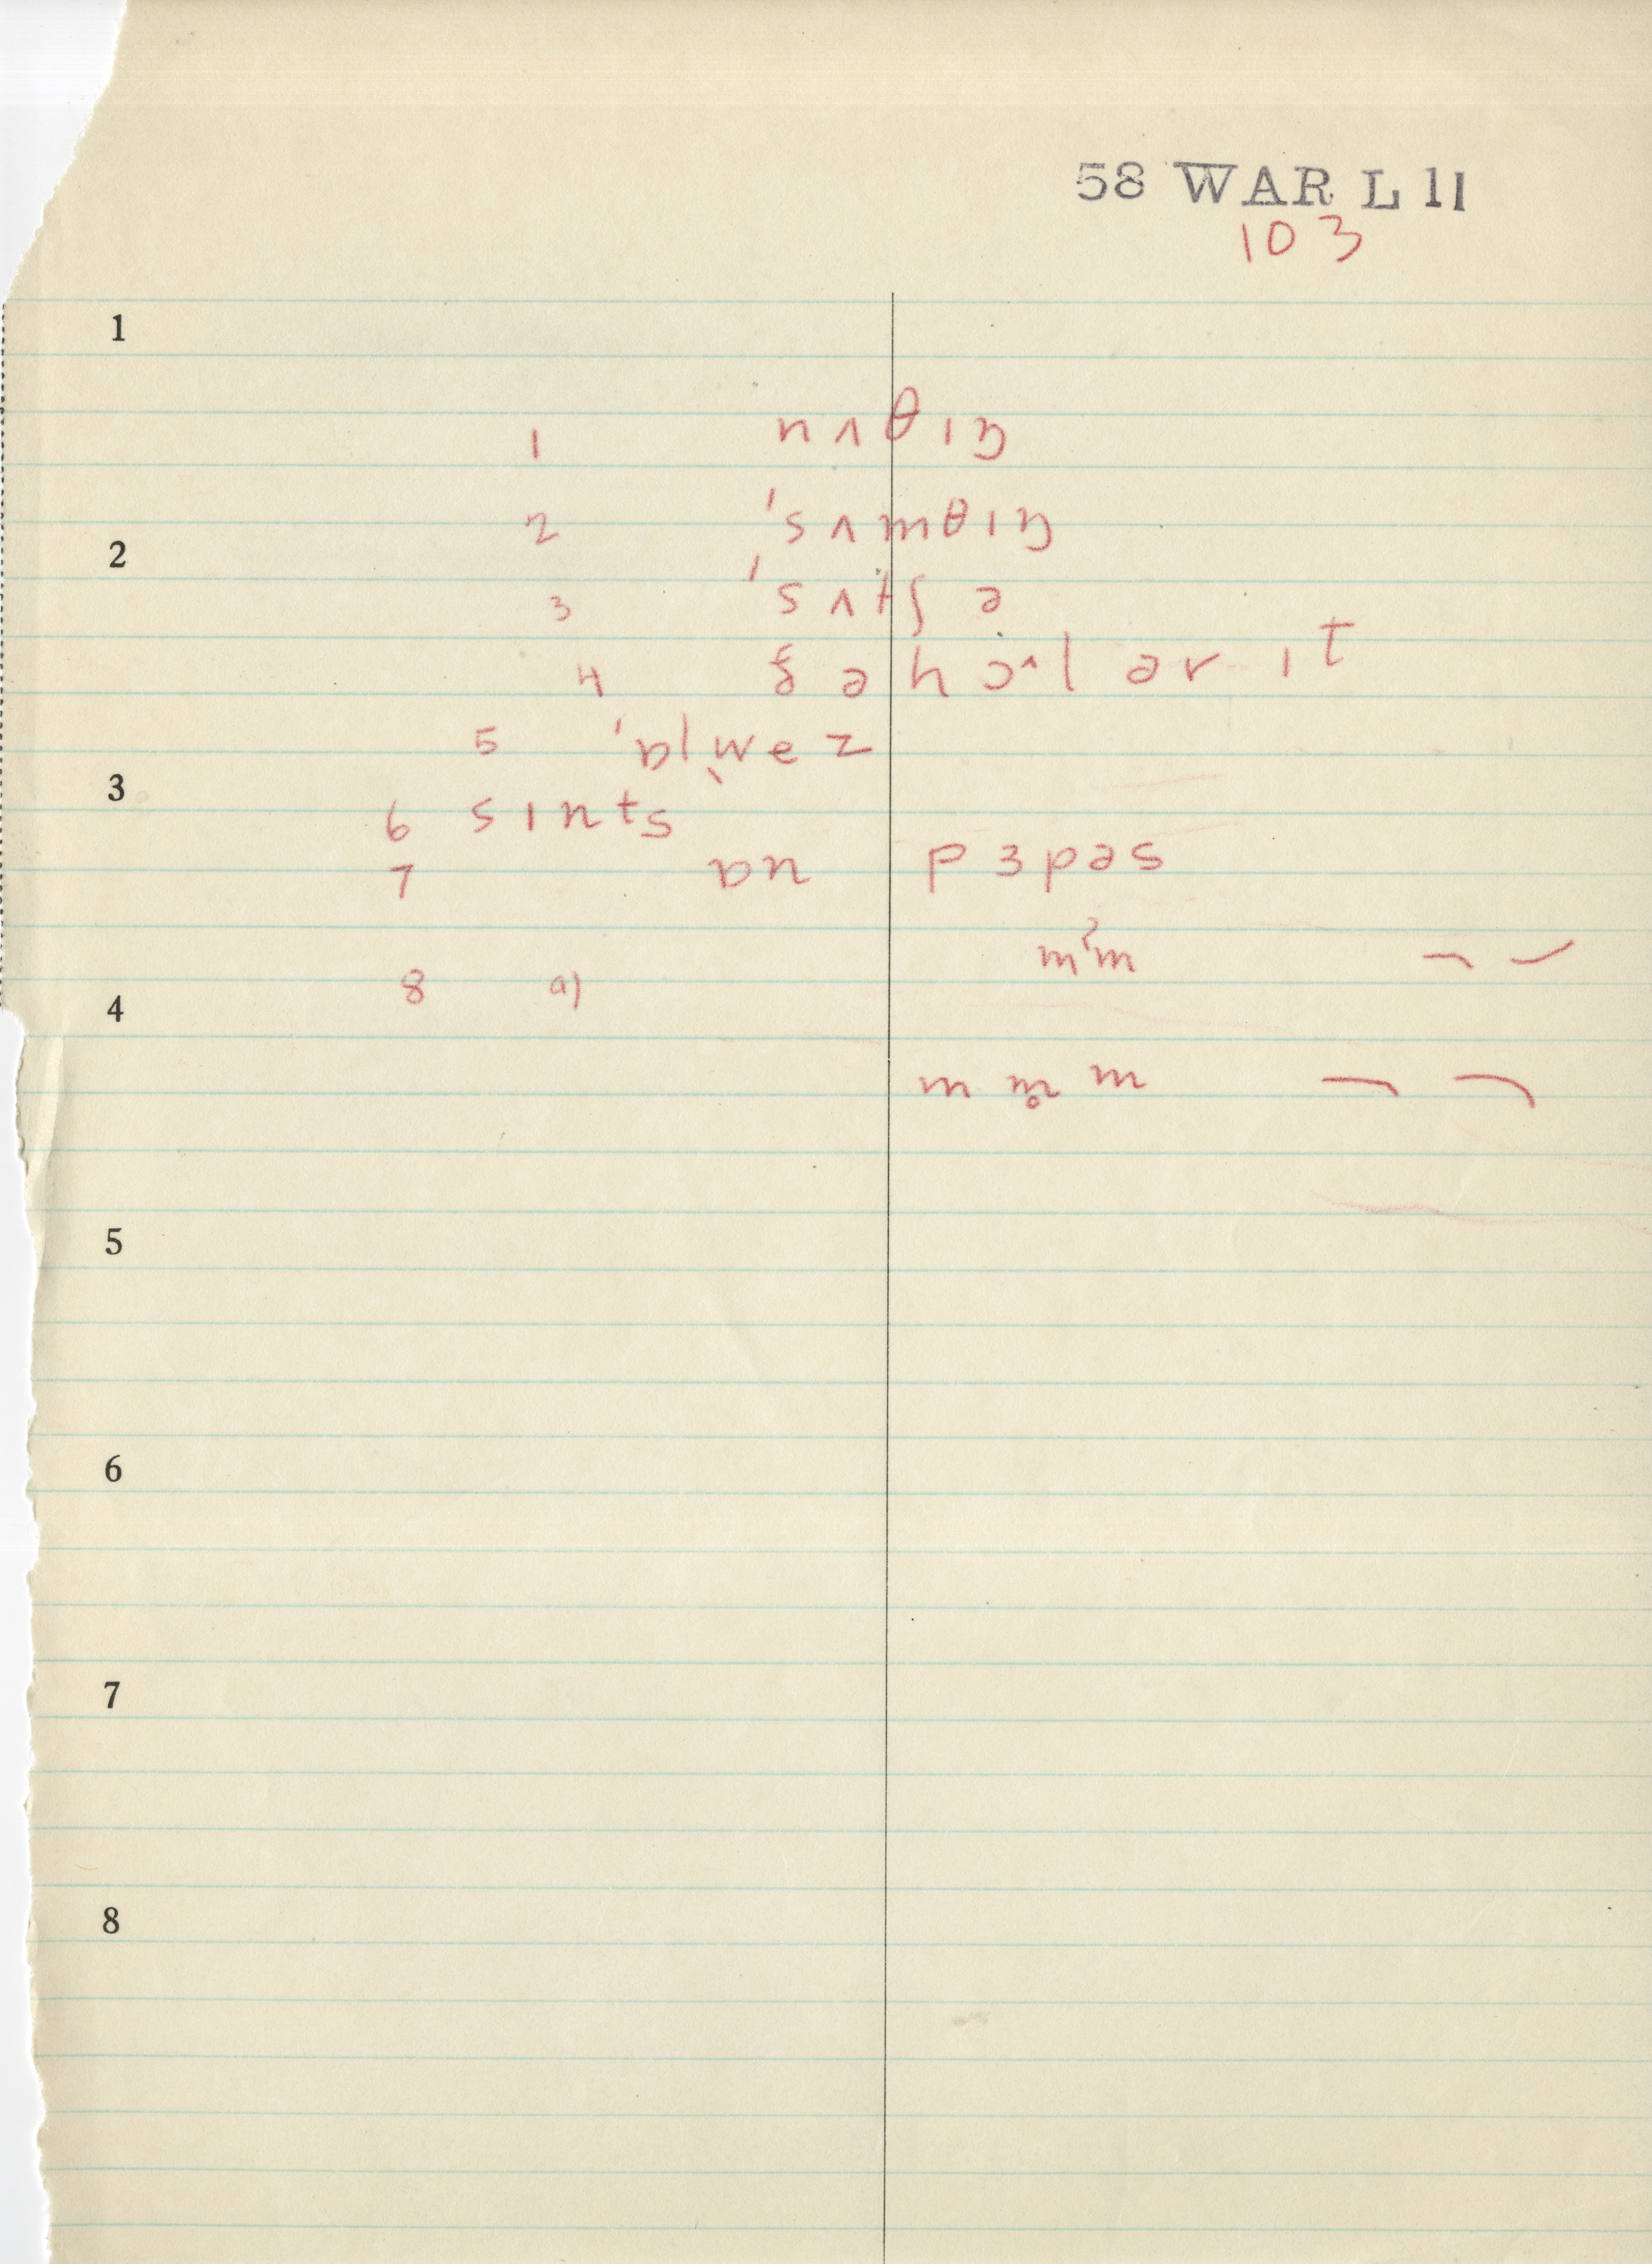 58 WAR L 11
103
1
1 nʌθɪŋ
2 ˈsʌmθɪŋ
2
3 ˈsʌtʃ ə
4 ðə hɔ˄l ər ɪt
5 ˈɒlwez
3
6 sɪnts
7 ɒn pɜpəs
mʔm
8 a)
4
m m̥ m
5
6
7
8